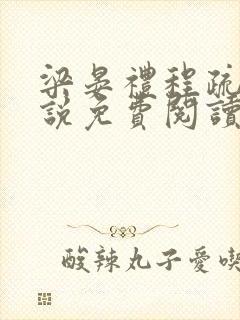 梁晏禮程疏
說免費閱讀
酸辣丸子愛喫